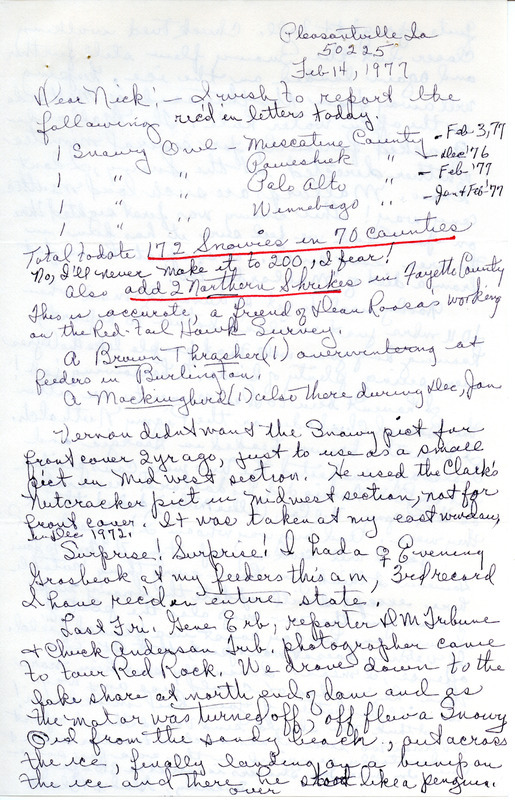 Pleasantville Ia
50225
Feb 14, 1977
Dear Nick! - I wish to report the
following rec'd in letters today:
1 Snowy Owl - Muscatine County - Feb 3, 77
1 " Poweshiek " - Dec '76
1 " Palo Alto " - Feb '77
1 " Winnebago " - Jan & Feb '77
Total to date 172 Snowies in 70 counties
No, I'll never make it to 200, I fear!
Also add 2 Northern Shrikes in Fayette County
This is accurate, a friend of Dean Roosas working
on the Red-Tail Hawk Survey.
A Brown Thrasher (1) overwintering at
feeders in Burlington.
A Mockingbird (1) also there during Dec, Jan
Vernon didn't want the Snowy pict for
front cover 2 yr ago, just to use as a small
pict in Midwest section. He used the Clark's
Nutcracker pict in Midwest section, not for
front cover. It was taken at my east window,
in Dec 1972.
Surprise! Surprise! I had a ♀ Evening
Grosbeak at my feeders this am, 3rd record
I have rec'd in entire state.
Last Fri. Gene Erb, reporter DM Tribune
& Chuck Anderson Trib. photographer came
to tour Red Rock. We drove down to the
lake shore at north end of dam and as
the motor was turned off, off flew a Snowy
Owl from the sandy beach, out across
the ice, finally landing on a bump on
the ice and there he stood like a penguin.
over